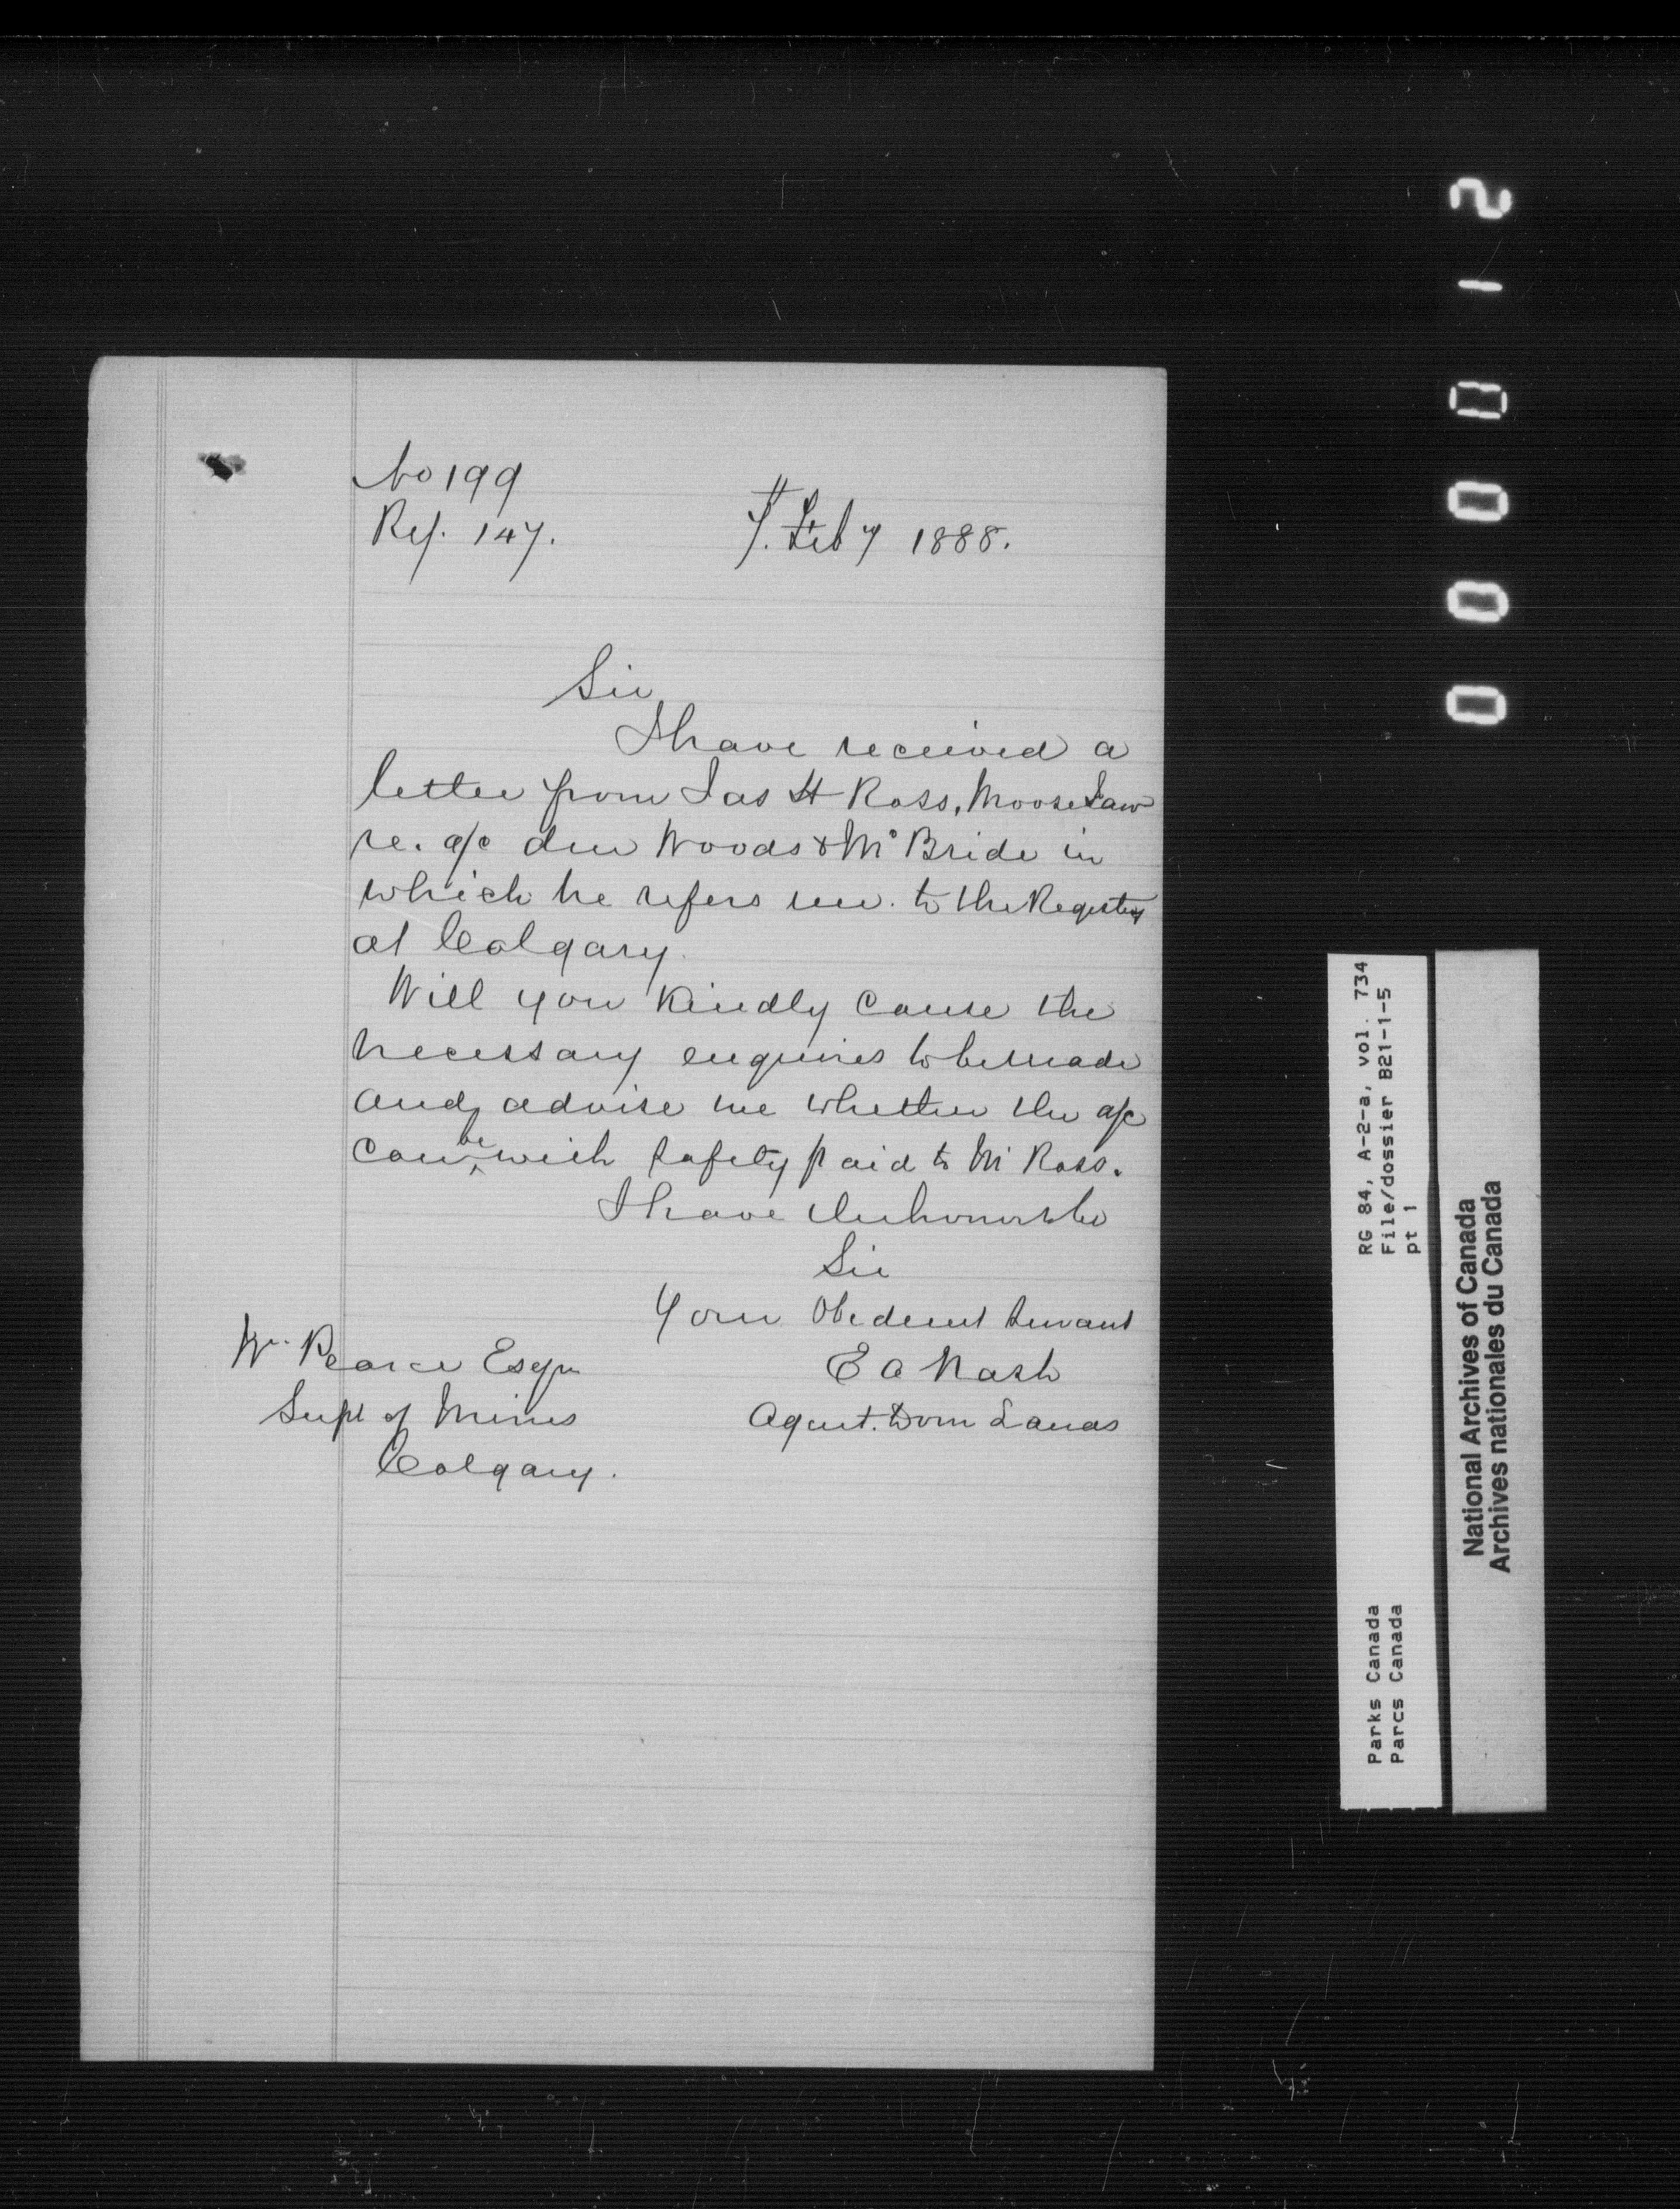 No 199
Ref. 147.
7th Feby 1888.
Sir
I have received a
letter from Jas H Ross, Moose Jaw
re. a/c due Woods & Mc Bride in
which he refers me. to the Registry
at Calgary.
Will you Kindly Cause the
necessary enquiries to be made
and advise me whether the a/c
can be with safety paid to Mr Ross.
I have the honor to be
Sir
Your Obedient Servant
E A Nash
Agent. Dom Lands
Wm Pearce Esqr
Supt of Mines
Calgary.
0000012
RG 84, A-2-a, vol. 734
File/dossier B21-1-5
pt 1
Parks Canada
Parcs Canada
National Archives of Canada
Archives nationales du Canada